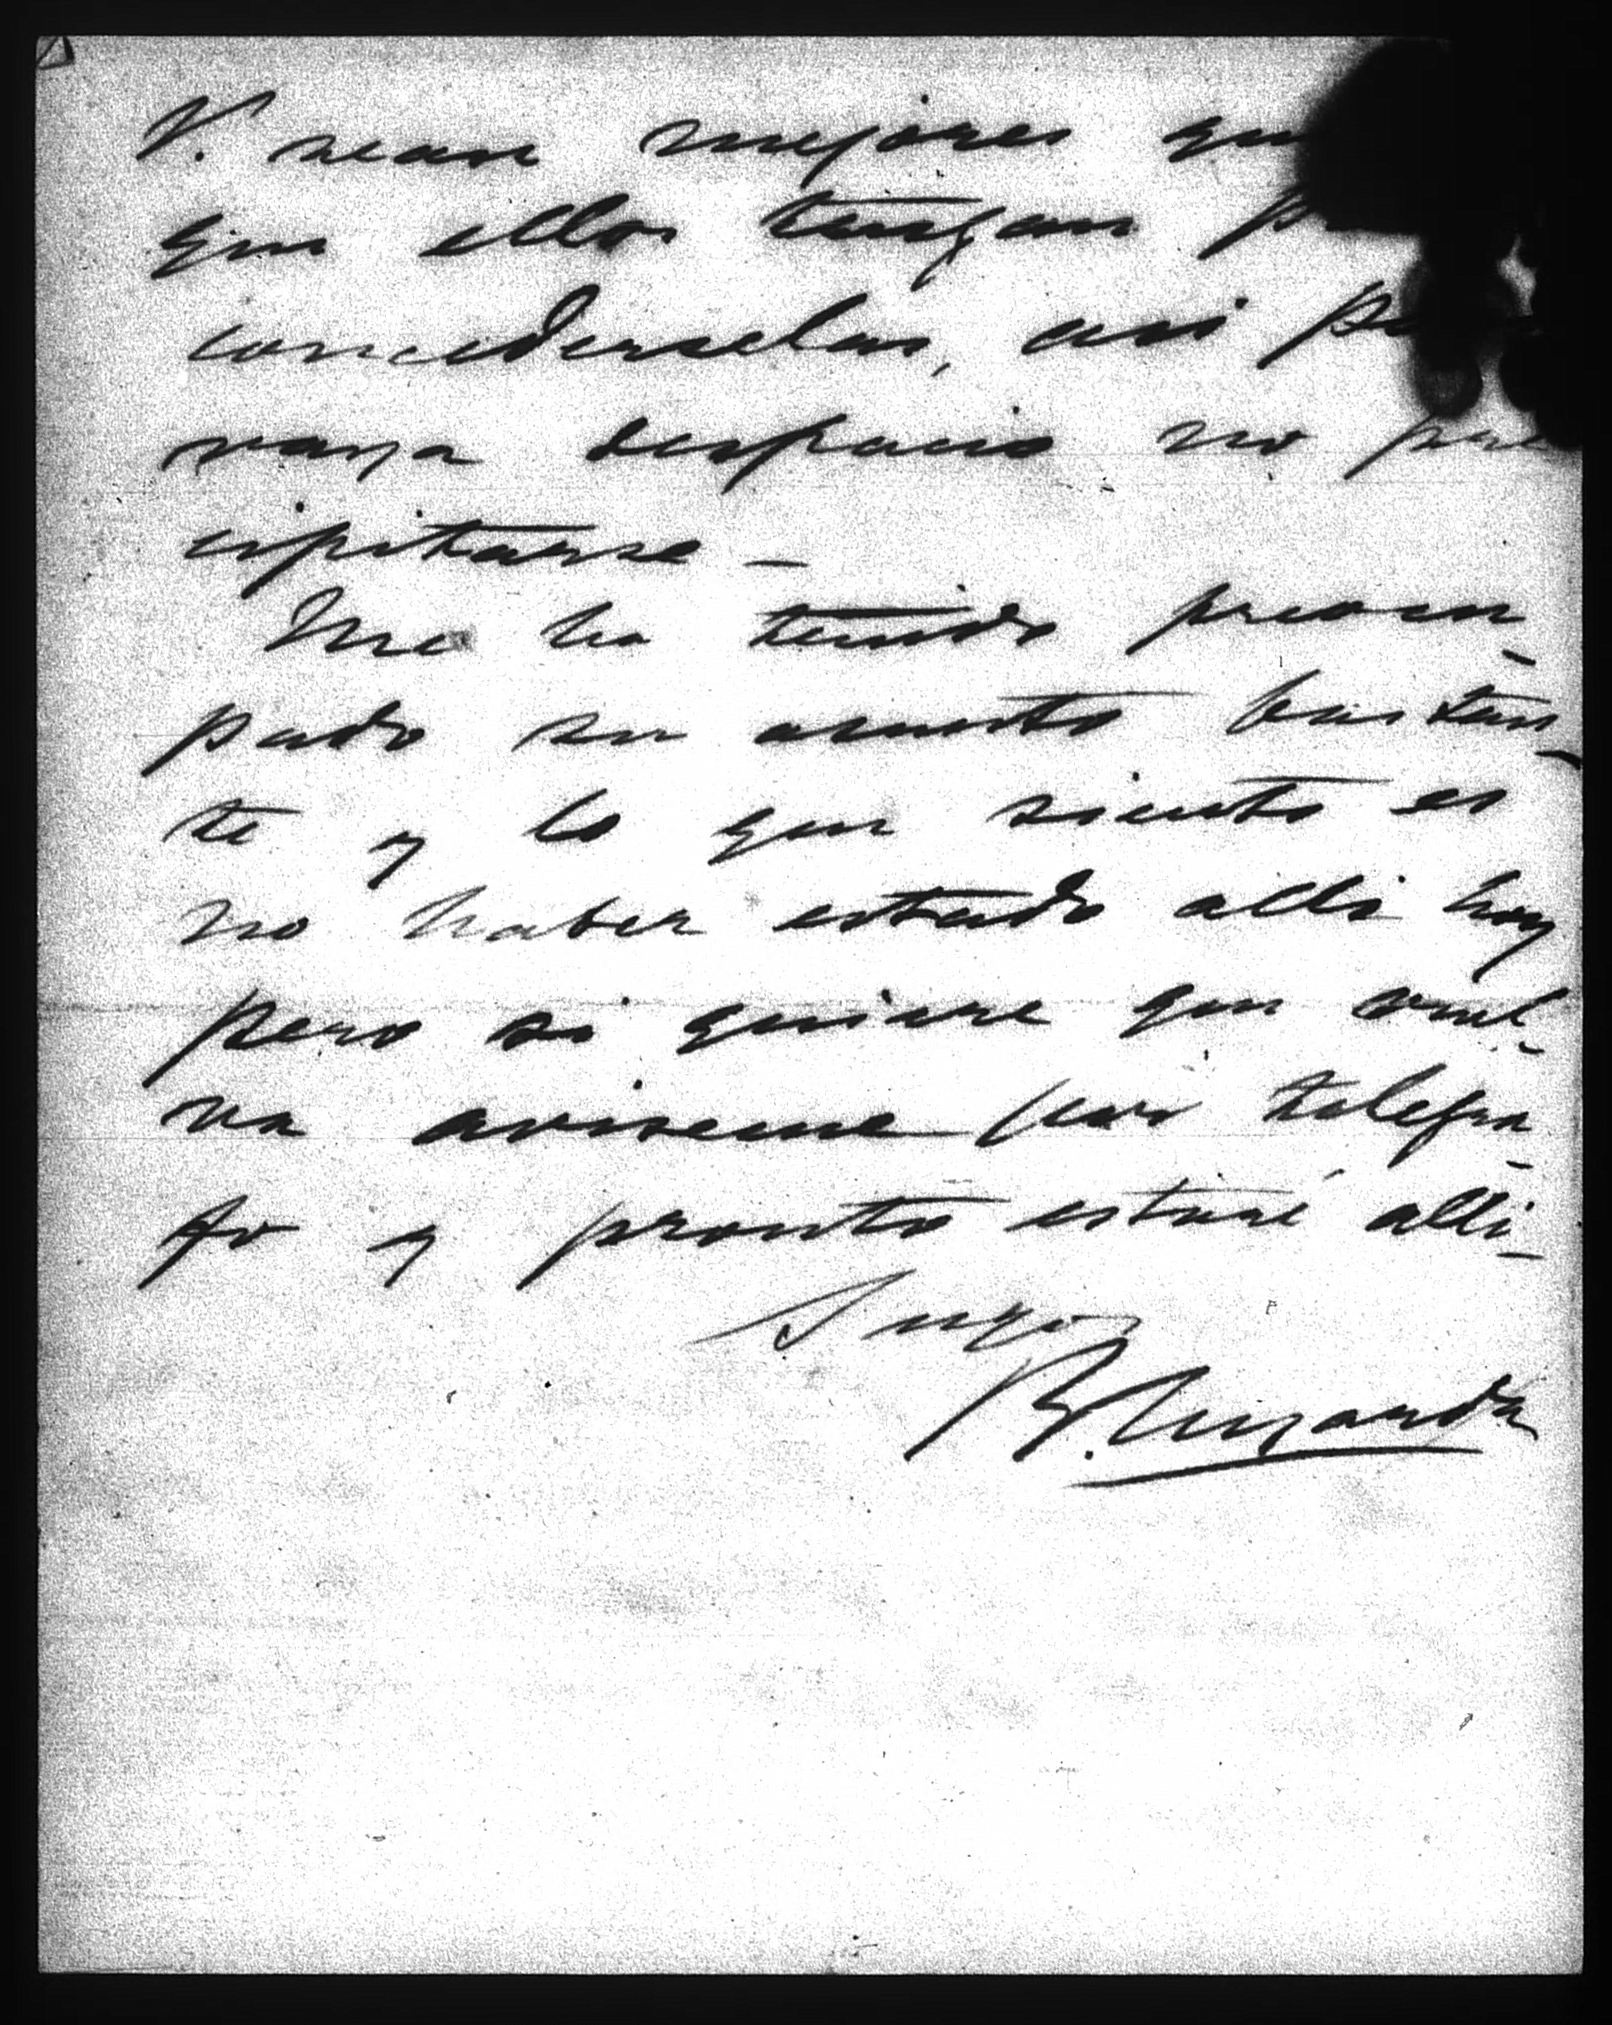 V. sean mejores qu
que ellos tengan p
concederselas, asi p
vaya despacio no pre
cipitarse —
Me ha tenido preocu-
pado su asunto bastan-
te y lo que siento es
no haber estado alli hoy
pero si quiere que vuel-
va aviseme por telegra-
fo y pronto estaré alli-
Suyo